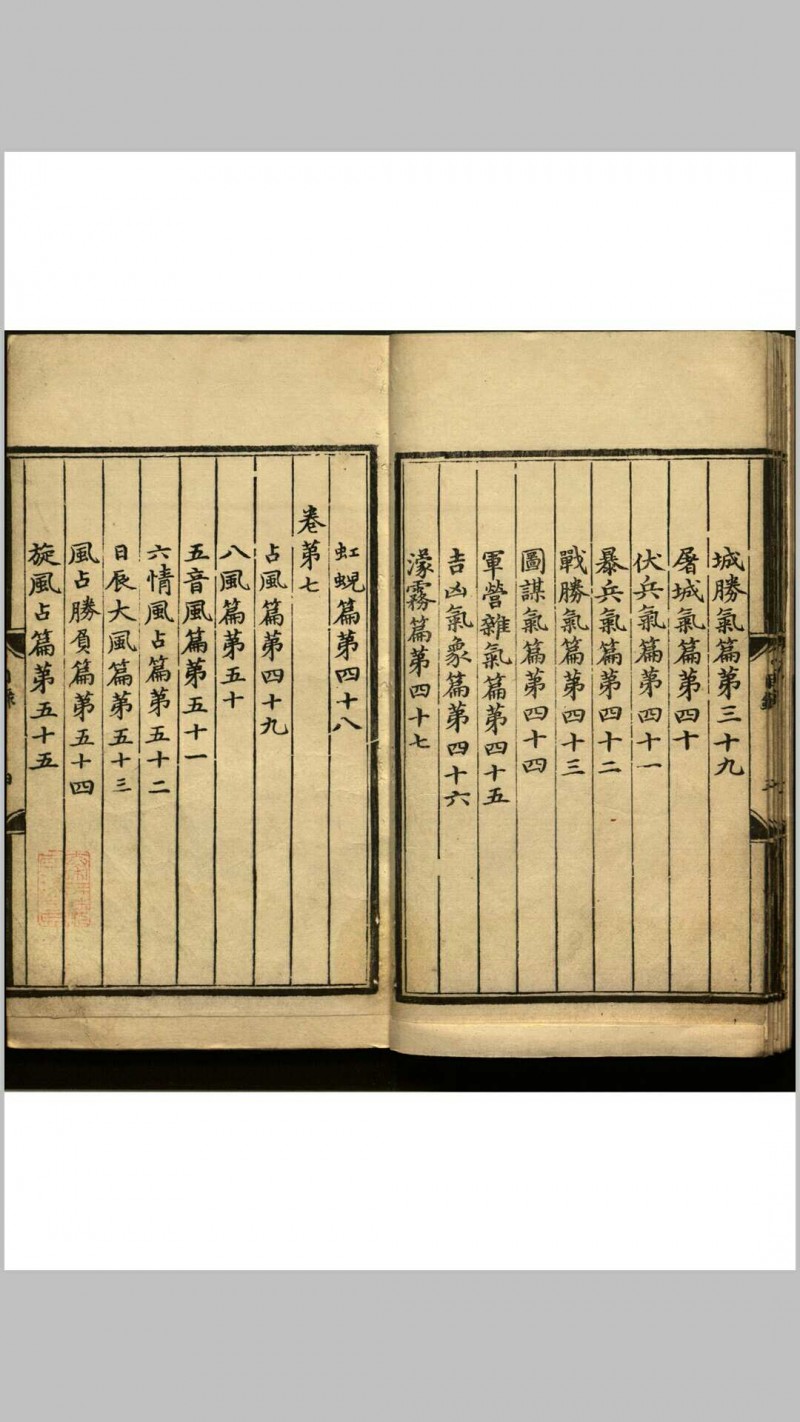 城勝氣篇第三十九
屠城氣篇第四十
伏兵氣篇第四十一
暴兵氣篇第四十二
戰勝氣篇第四十三
圖謀氣篇第四十四
軍營雜氣篇第四十五
吉凶氣象篇第四十六
濛霧篇第四十七
虹蜺篇第四十八
卷第七
占風篇第四十九
八風篇第五十
五音風篇第五十一
六情風占篇第五十二
日辰大風篇第五十三
風占勝負篇第五十四
旋風占篇第五十五